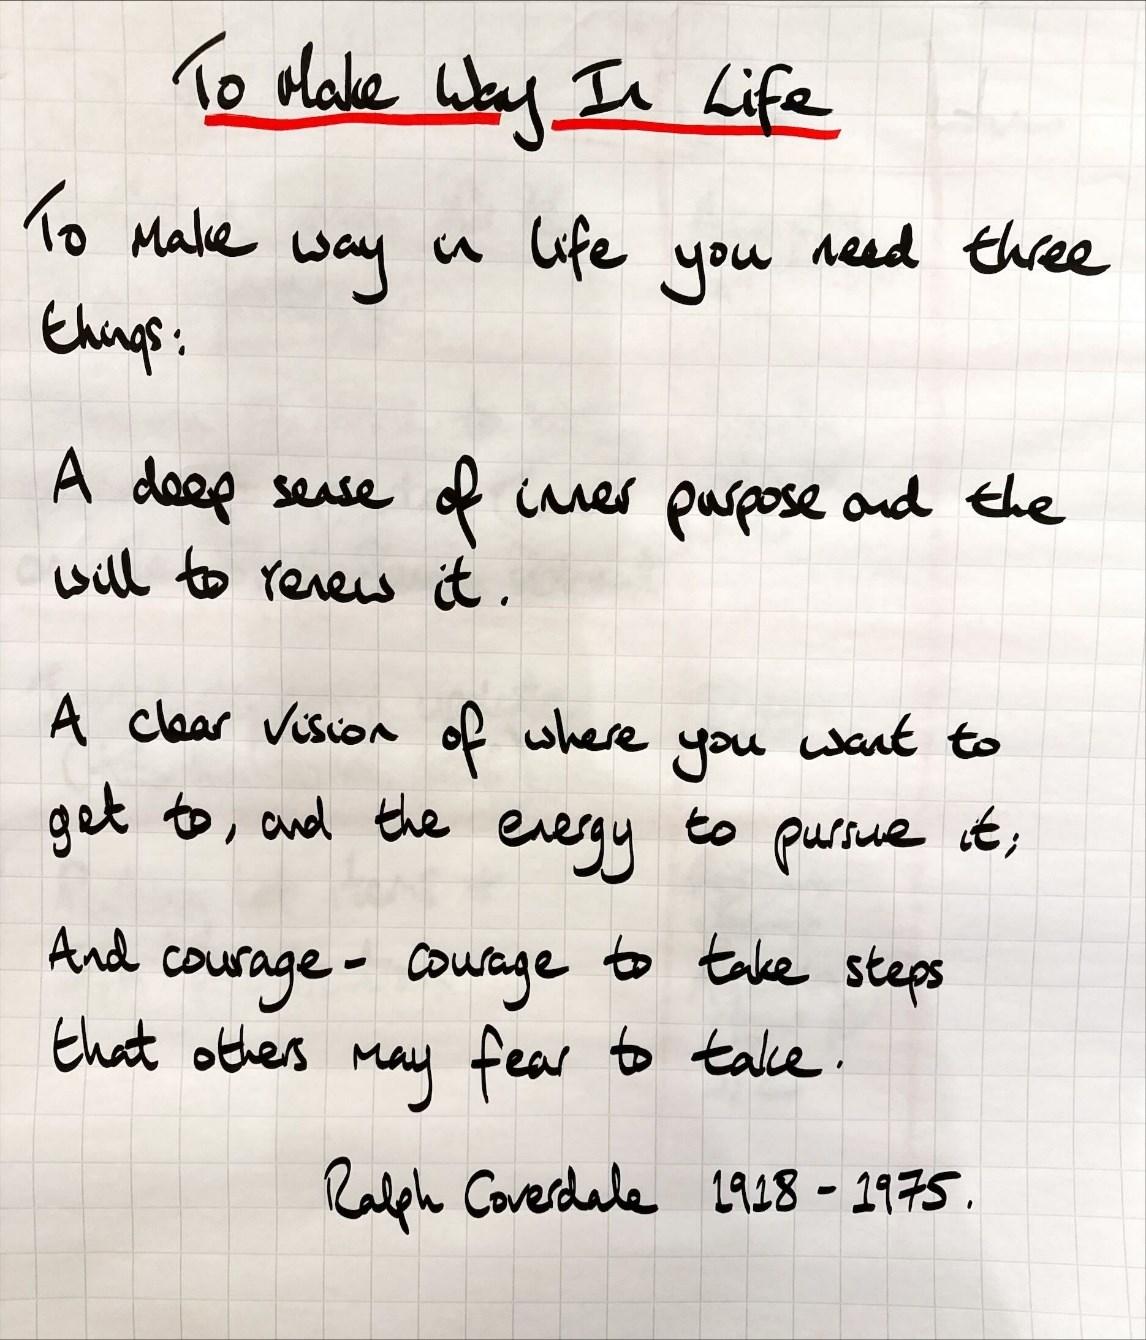 To Make Way In Life
To Make way in life you need three
things:
A deep sense of inner purpose and the
will to renew it.
A clear vision of where you want to
get to, and the energy to pursue it;
And courage - courage to take steps
that others may fear to take.
Ralph Coverdale 1918 - 1975.